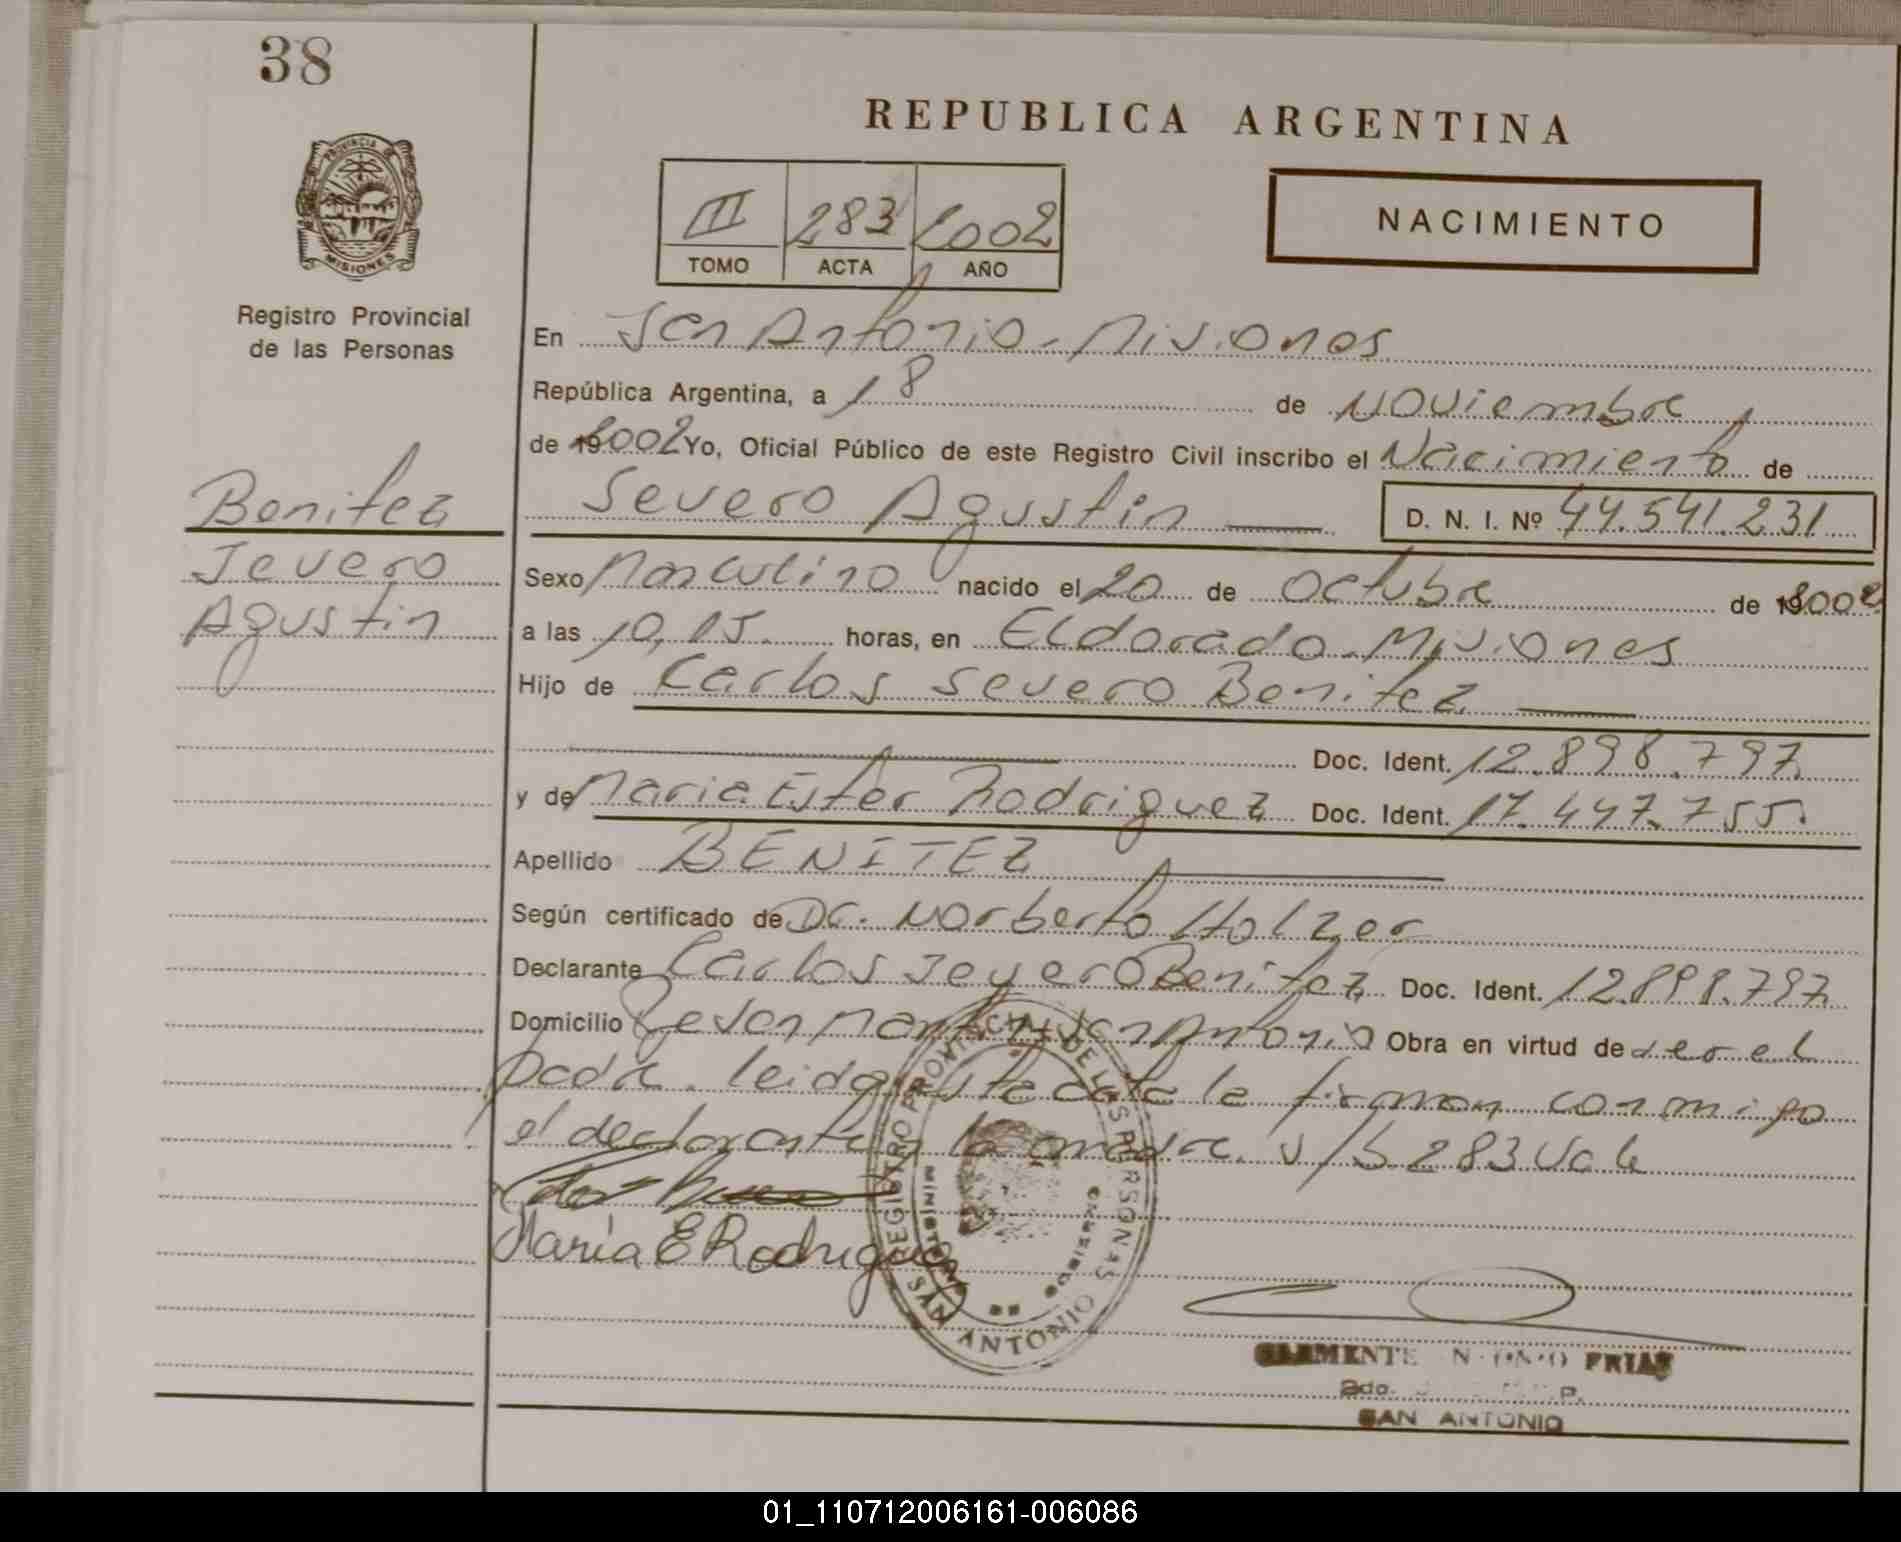 38
REPUBLICA ARGENTINA
PROVINCIA DE
MISIONES
III 283 2002
TOMO ACTA AÑO
NACIMIENTO
Registro Provincial
de las Personas
En San Antonio - Misiones
República Argentina, a 18 de Noviembre
de 2002 Yo, Oficial Público de este Registro Civil inscribo el Nacimiento de
Benitez
Severo Agustin
D. N. I. Nº 44.541.231
Severo
Agustin
Sexo Masculino nacido el 20 de Octubre de 2002
a las 10,15. horas, en Eldorado - Misiones
Hijo de Carlos Severo Benitez
Doc. Ident. 12.898.797
y de Maria Ester Rodriguez Doc. Ident. 17.447.755.
Apellido BENITEZ
Según certificado de Dr. Norberto Holzer
Declarante Carlos Severo Benitez Doc. Ident. 12.898.797
Domicilio San Antonio Obra en virtud de ser el
Padre. leida este acta la firman conmigo
el declarante y la madre. S/B 283 Vale
Maria E Rodriguez
REGISTRO PROVINCIAL DE LAS PERSONAS
MINISTERIO GOBIERNO
SAN ANTONIO
CLEMENTE FRIAS
2do.
SAN ANTONIO
01_110712006161-006086